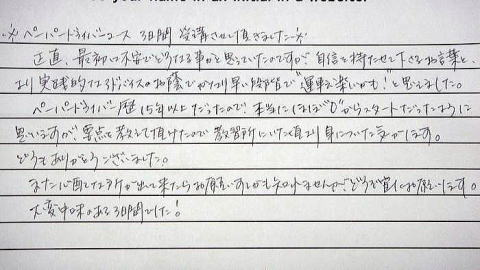 your name in an initial in a website.
※ペーパードライバーコース 3日間 受講させて頂きました※
正直、最初は不安でどうなる事かと思っていたのですが、自信を持たせて下さるお言葉と、
より実践的なアドバイスのお陰でかなり早い段階で"運転楽しいかも!"と思えました。
ペーパードライバー歴15年以上だったので、本当にほぼ"0"からスタートだったように
思いますが、要点を教えて頂けたので教習所にいた頃より身についた気がします。
どうもありがとうございました。
また心配な所が出て来たらお願いするかもしれませんので、どうぞ宜しくお願いします。
大変中味のある3日間でした!